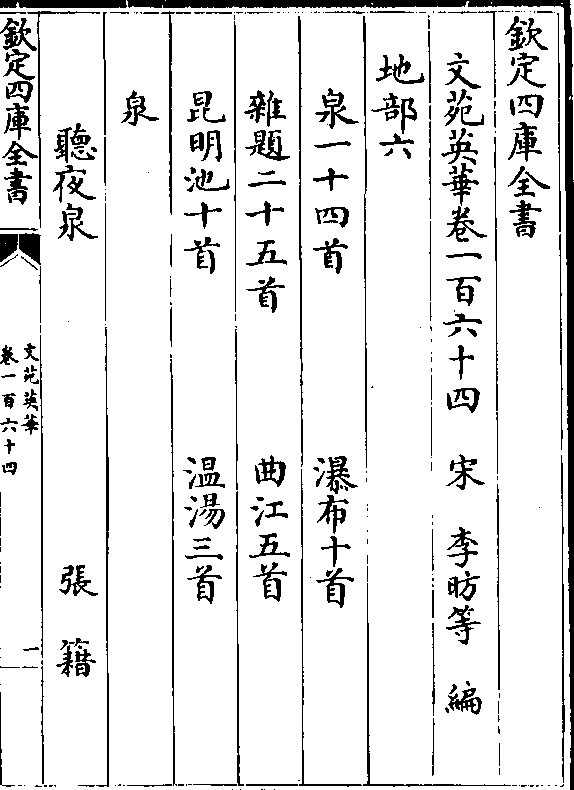 欽定四庫全書
文苑英華卷一百六十四　宋　李昉等　編
地部六
泉一十四首　瀑布十首
雜題二十五首　曲江五首
昆明池十首　温湯三首
泉
聽夜泉　張　籍
欽定四庫全書
文苑英華
卷一百六十四
一